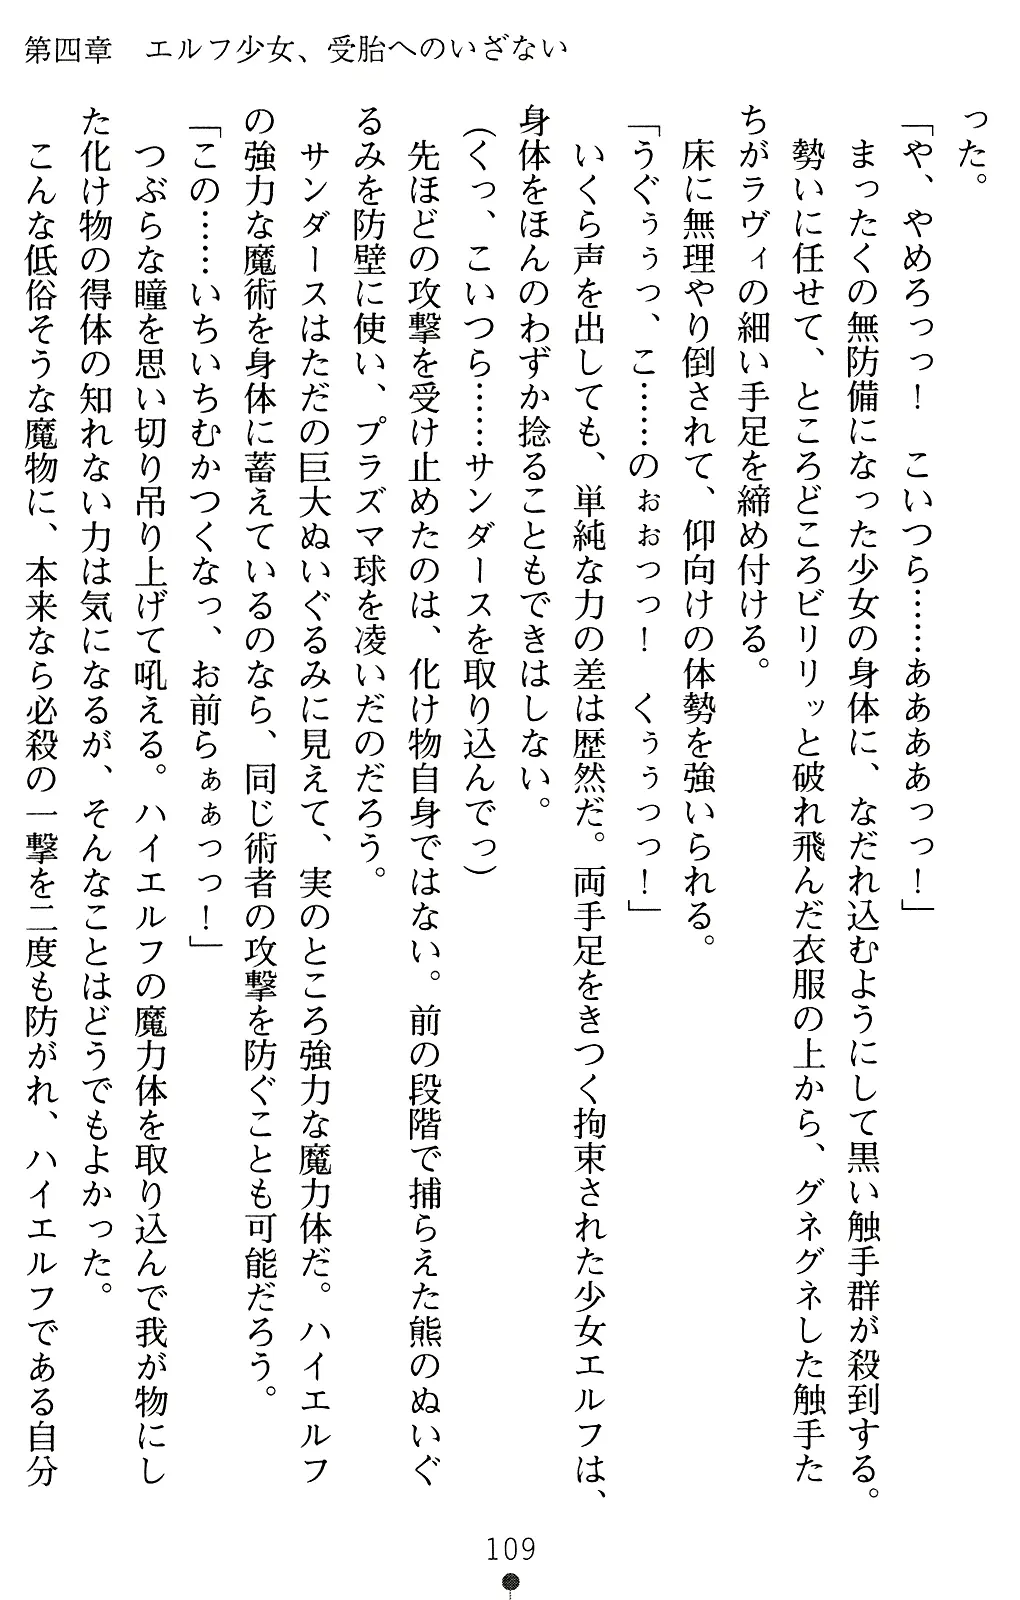 第四章　エルフ少女、受胎へのいざない
った。
「や、やめろっっ！　こいつら……あああぁっっ！」
まったくの無防備になった少女の身体に、なだれ込むようにして黒い触手群が殺到する。
勢いに任せて、ところどころビリリッと破れ飛んだ衣服の上から、グネグネした触手た
ちがラヴィの細い手足を締め付ける。
床に無理やり倒されて、仰向けの体勢を強いられる。
「うぐぅぅっ、こ……のぉぉっっ！　くぅぅっっ！」
いくら声を出しても、単純な力の差は歴然だ。両手足をきつく拘束された少女エルフは、
身体をほんのわずか捻ることもできはしない。
（くっ、こいつら……サンダースを取り込んでっ）
先ほどの攻撃を受け止めたのは、化け物自身ではない。前の段階で捕らえた熊のぬいぐ
るみを防壁に使い、プラズマ球を凌いだのだろう。
サンダースはただの巨大ぬいぐるみに見えて、実のところ強力な魔力体だ。ハイエルフ
の強力な魔術を身体に蓄えているのなら、同じ術者の攻撃を防ぐことも可能だろう。
「この……いちいちむかつくなっ、お前らぁぁっっ！」
つぶらな瞳を思い切り吊り上げて吼える。ハイエルフの魔力体を取り込んで我が物にし
た化け物の得体の知れない力は気になるが、そんなことはどうでもよかった。
こんな低俗そうな魔物に、本来なら必殺の一撃を二度も防がれ、ハイエルフである自分
109